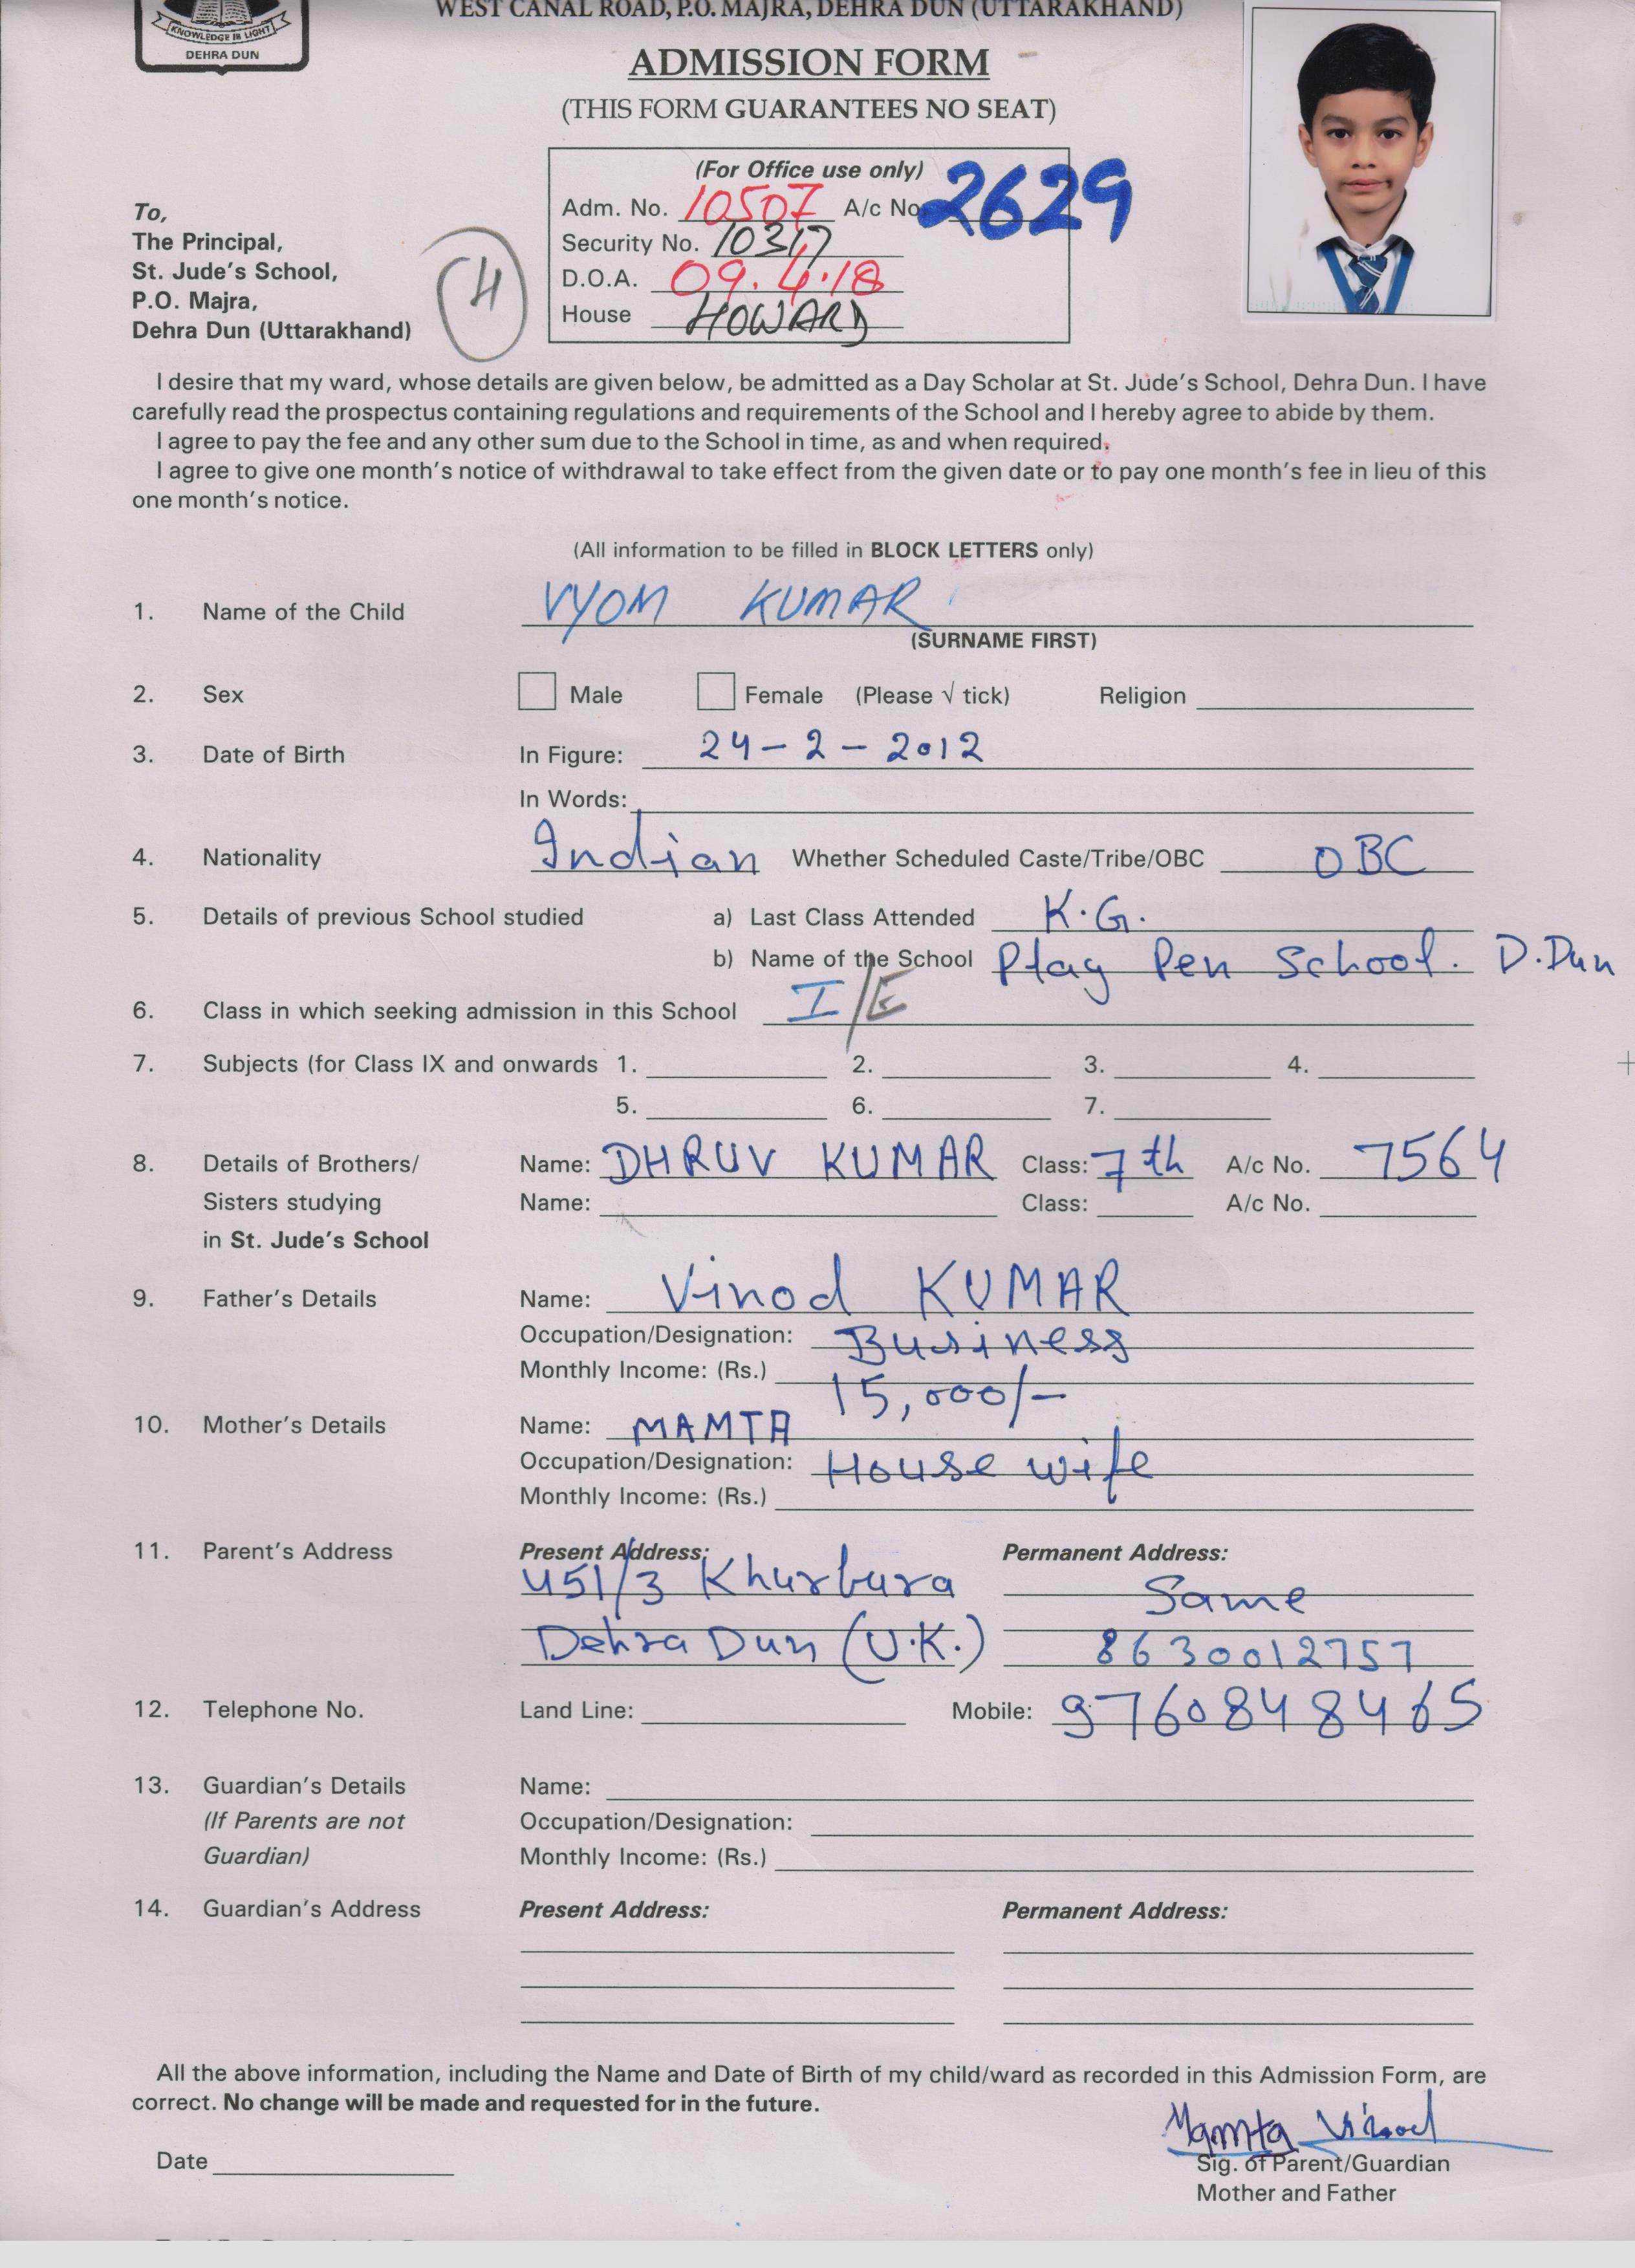 KNOWLEDGE IS LIGHT
DEHRA DUN
WEST CANAL ROAD, P.O. MAJRA, DEHRA DUN (UTTARAKHAND)
ADMISSION FORM
(THIS FORM GUARANTEES NO SEAT)
(For Office use only)
Adm. No. 10507 A/c No. 2629
Security No. 10317
D.O.A. 09.4.18
House HOWARD
To,
The Principal,
St. Jude's School,
P.O. Majra,
Dehra Dun (Uttarakhand)
4
I desire that my ward, whose details are given below, be admitted as a Day Scholar at St. Jude's School, Dehra Dun. I have
carefully read the prospectus containing regulations and requirements of the School and I hereby agree to abide by them.
I agree to pay the fee and any other sum due to the School in time, as and when required.
I agree to give one month's notice of withdrawal to take effect from the given date or to pay one month's fee in lieu of this
one month's notice.
(All information to be filled in BLOCK LETTERS only)
1. Name of the Child VYOM KUMAR
(SURNAME FIRST)
2. Sex Male Female (Please √ tick) Religion
3. Date of Birth In Figure: 24-2-2012
In Words:
4. Nationality Indian Whether Scheduled Caste/Tribe/OBC OBC
5. Details of previous School studied a) Last Class Attended K.G.
b) Name of the School Play Pen School. D.Dun
6. Class in which seeking admission in this School I/E
7. Subjects (for Class IX and onwards 1. 2. 3. 4.
5. 6. 7.
8. Details of Brothers/ Name: DHRUV KUMAR Class: 7th A/c No. 7564
Sisters studying Name: Class: A/c No.
in St. Jude's School
9. Father's Details Name: Vinod KUMAR
Occupation/Designation: Business
Monthly Income: (Rs.) 15,000/-
10. Mother's Details Name: MAMTA
Occupation/Designation: House wife
Monthly Income: (Rs.)
11. Parent's Address Present Address: Permanent Address:
451/3 Khurbura Same
Dehra Dun (U.K.) 8630012757
12. Telephone No. Land Line: Mobile: 9760848465
13. Guardian's Details Name:
(If Parents are not Occupation/Designation:
Guardian) Monthly Income: (Rs.)
14. Guardian's Address Present Address: Permanent Address:
All the above information, including the Name and Date of Birth of my child/ward as recorded in this Admission Form, are
correct. No change will be made and requested for in the future.
Mamta Vinod
Date Sig. of Parent/Guardian
Mother and Father